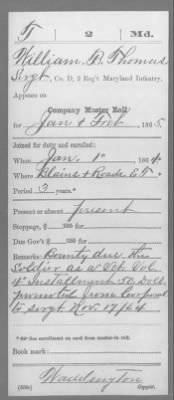 T | 2 | Md.
William B. Thomas
Sergt, Co. D, 2 Reg't Maryland Infantry.
Appears on
Company Muster Roll
for Jan & Feb, 1865.
Joined for duty and enrolled:
When Jan. 1", 1864.
Where Blains + Roads E T.
Period 3 years.*
Present or absent present
Stoppage, $ 100 for
Due Gov't $ 100 for
Remarks: Bounty due the
Soldier as a Vet. Vol.
4" Installment 50 Dolls
promoted from Corporal
to Sergt Nov. 17/64
* See enrollment on card from muster-in roll.
Book mark:
(858c) Copyist.